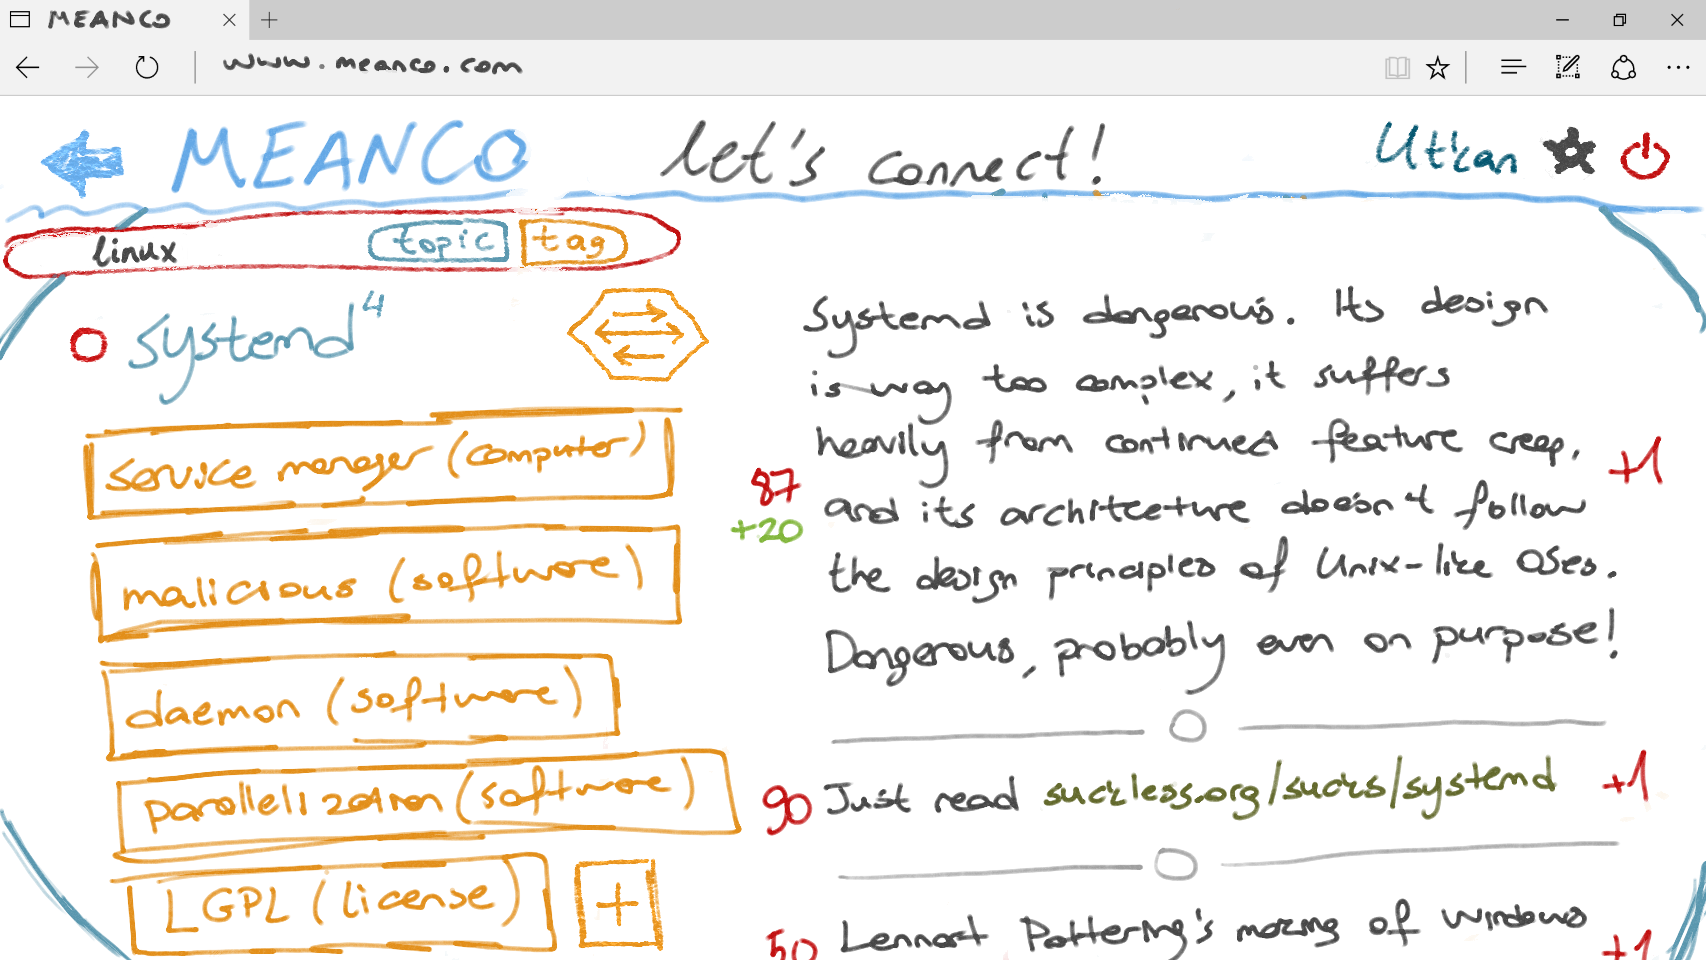 MEANCO
www.meanco.com
MEANCO let's connect! Utkan
linux topic tag
systemd 4
service manager (computer)
malicious (software)
daemon (software)
parallelization (software)
LGPL (license) +
Systemd is dangerous. Its design
is way too complex, it suffers
heavily from continued feature creep,
and its architecture doesn't follow
the design principles of Unix-like OSes.
Dangerous, probably even on purpose!
87
+20
+1
90 Just read suckless.org/sucks/systemd +1
50 Lennart Pottering's mozng of windows +1